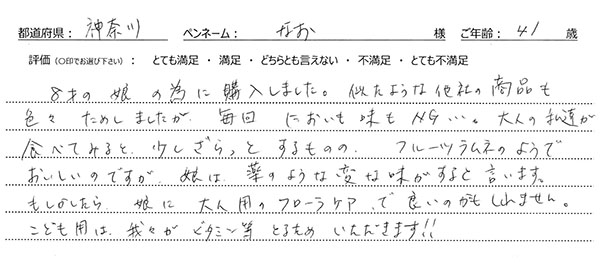 都道府県： 神奈川 ペンネーム： なお 様 ご年齢： 41 歳
評価（○印でお選び下さい） とても満足 ・ 満足 ・ どちらとも言えない ・ 不満足 ・ とても不満足
8才の娘の為に購入しました。似たような他社の商品も
色々ためしましたが、毎回 においも味もNG…。大人の私達が
食べてみると、少しざらっとするものの、フルーツラムネのようで
おいしいのですが、娘は、薬のような変な味がすると言います。
もしかしたら、娘に大人用のフローラケア、で良いのかもしれません。
こども用は、我々がビタミン等とるため いただきます!!